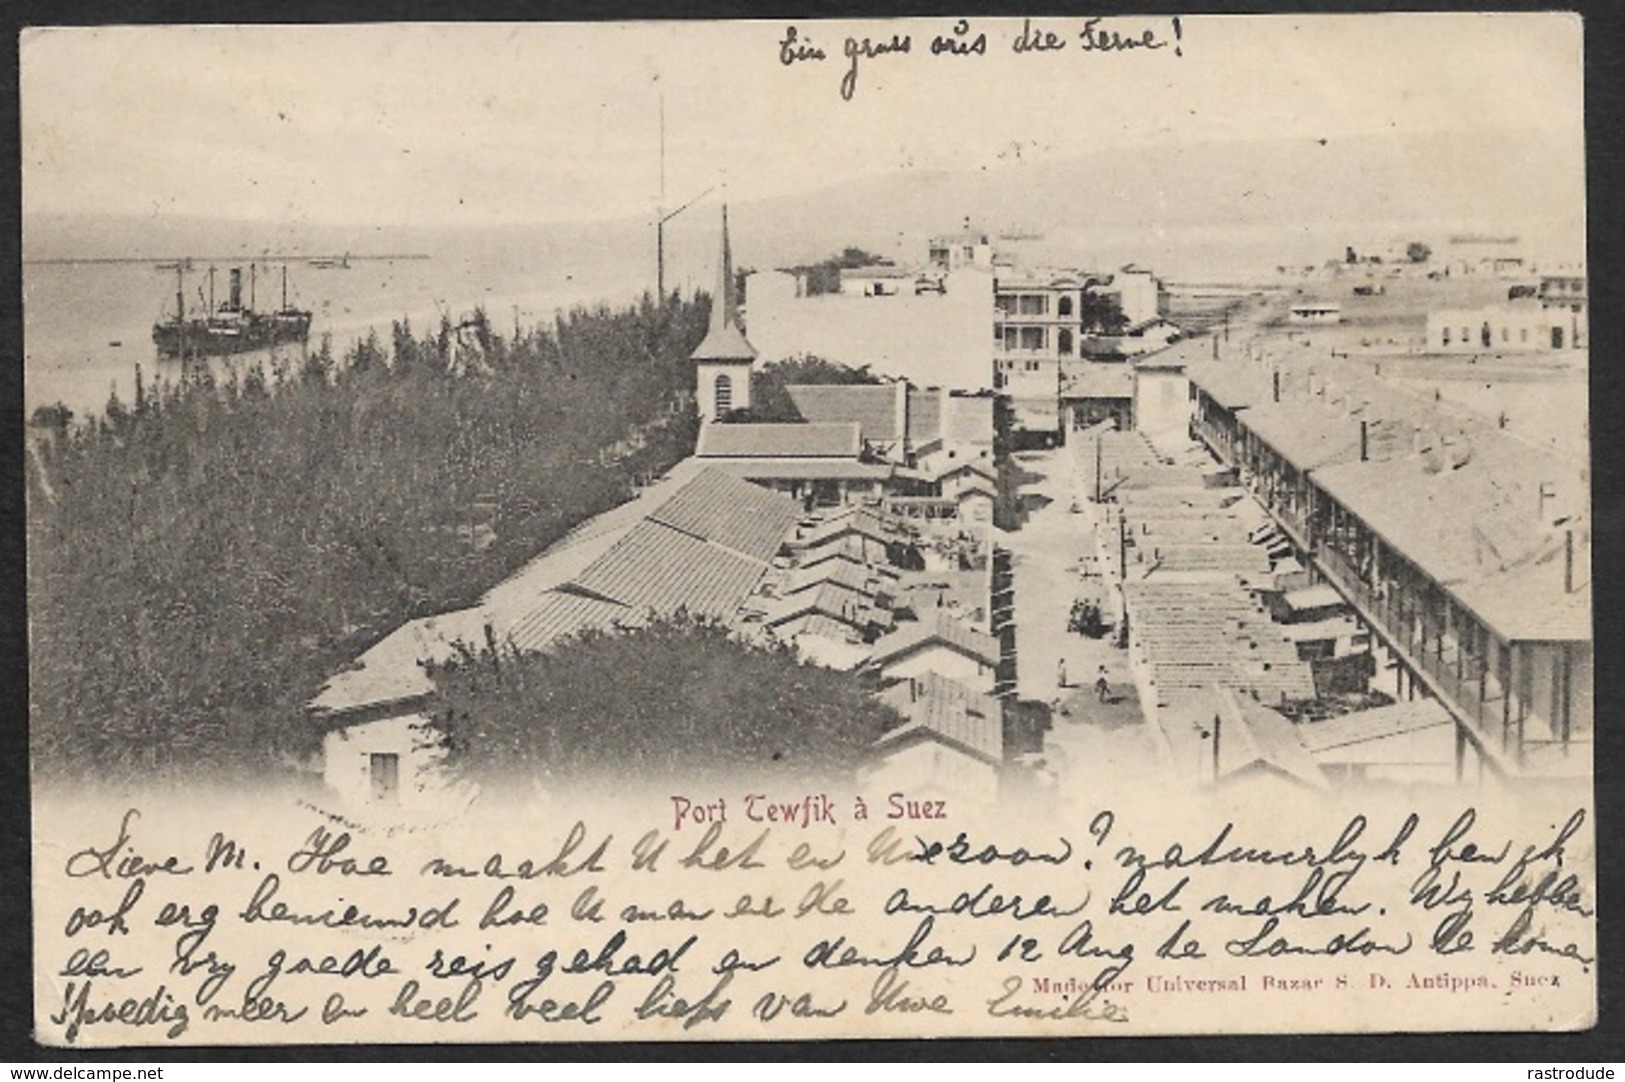 Ein gruss aŭs die Ferne!
Port Tewfik à Suez
Lieve M. Hoe maakt U het en Uwe zoon? natuurlyk ben ik
ook erg benieuwd hoe U man en de anderen het maken. Wy hebben
een vry goede reis gehad en denken 12 Aug te London te komen
Made for Universal Bazar S. D. Antippa, Suez
Spoedig meer en heel veel liefs van Uwe Emilie
delcampe.net
rastrodude